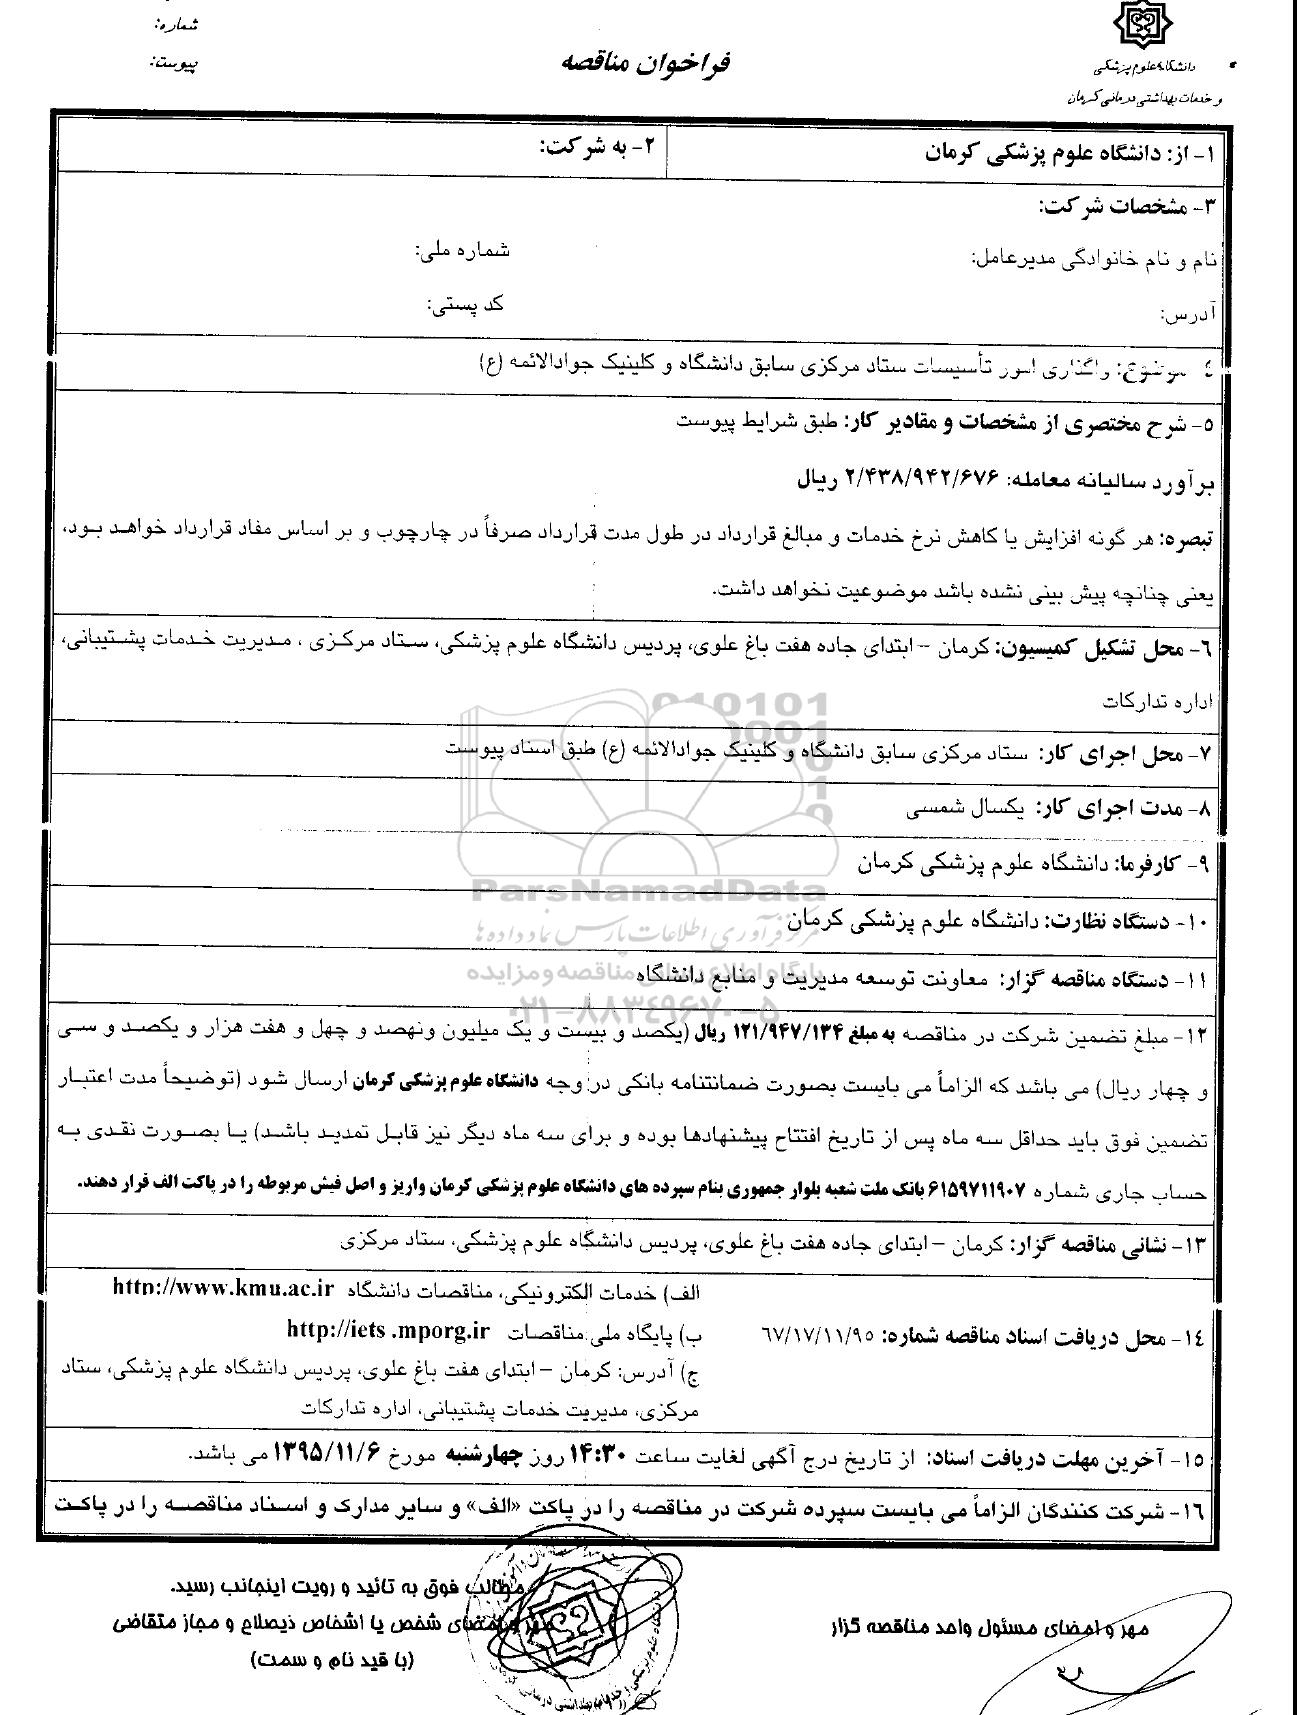 شماره:
پیوست:
فراخوان مناقصه
دانشگاه علوم پزشکی
و خدمات بهداشتی درمانی کرمان
۱- از: دانشگاه علوم پزشکی کرمان
۲- به شرکت:
۳- مشخصات شرکت:
نام و نام خانوادگی مدیرعامل:
شماره ملی:
آدرس:
کد پستی:
٤ موضوع: واگذاری امور تأسیسات ستاد مرکزی سابق دانشگاه و کلینیک جوادالائمه (ع)
۵- شرح مختصری از مشخصات و مقادیر کار: طبق شرایط پیوست
برآورد سالیانه معامله: ۲/۴۳۸/۹۴۲/۶۷۶ ریال
تبصره: هر گونه افزایش یا کاهش نرخ خدمات و مبالغ قرارداد در طول مدت قرارداد صرفاً در چارچوب و بر اساس مفاد قرارداد خواهد بود،
یعنی چنانچه پیش بینی نشده باشد موضوعیت نخواهد داشت.
۶- محل تشکیل کمیسیون: کرمان – ابتدای جاده هفت باغ علوی، پردیس دانشگاه علوم پزشکی، ستاد مرکزی ، مدیریت خدمات پشتیبانی،
اداره تدارکات
۷- محل اجرای کار: ستاد مرکزی سابق دانشگاه و کلینیک جوادالائمه (ع) طبق اسناد پیوست
۸- مدت اجرای کار: یکسال شمسی
۹- کارفرما: دانشگاه علوم پزشکی کرمان
ParsNamadData
۱۰- دستگاه نظارت: دانشگاه علوم پزشکی کرمان
مرکز فرآوری اطلاعات پارس نماد داده ها
۱۱- دستگاه مناقصه گزار: معاونت توسعه مدیریت و منابع دانشگاه
پایگاه اطلاع رسانی مناقصه و مزایده
۰۲۱-۸۸۳۴۹۶۷۰-۵
۱۲- مبلغ تضمین شرکت در مناقصه به مبلغ ۱۲۱/۹۴۷/۱۳۴ ریال (یکصد و بیست و یک میلیون ونهصد و چهل و هفت هزار و یکصد و سی
و چهار ریال) می باشد که الزاماً می بایست بصورت ضمانتنامه بانکی در وجه دانشگاه علوم پزشکی کرمان ارسال شود (توضیحاً مدت اعتبار
تضمین فوق باید حداقل سه ماه پس از تاریخ افتتاح پیشنهادها بوده و برای سه ماه دیگر نیز قابل تمدید باشد) یا بصورت نقدی به
حساب جاری شماره ۶۱۵۹۷۱۱۹۰۷ بانک ملت شعبه بلوار جمهوری بنام سپرده های دانشگاه علوم پزشکی کرمان واریز و اصل فیش مربوطه را در پاکت الف قرار دهند.
۱۳- نشانی مناقصه گزار: کرمان – ابتدای جاده هفت باغ علوی، پردیس دانشگاه علوم پزشکی، ستاد مرکزی
۱٤- محل دریافت اسناد مناقصه شماره: ٦٧/١٧/١١/٩٥
الف) خدمات الکترونیکی، مناقصات دانشگاه http://www.kmu.ac.ir
ب) پایگاه ملی مناقصات http://iets .mporg.ir
ج) آدرس: کرمان – ابتدای هفت باغ علوی، پردیس دانشگاه علوم پزشکی، ستاد
مرکزی، مدیریت خدمات پشتیبانی، اداره تدارکات
۱۵- آخرین مهلت دریافت اسناد: از تاریخ درج آگهی لغایت ساعت ۱۴:۳۰ روز چهارشنبه مورخ ۱۳۹۵/۱۱/۶ می باشد.
۱۶- شرکت کنندگان الزاماً می بایست سپرده شرکت در مناقصه را در پاکت «الف» و سایر مدارک و اسناد مناقصه را در پاکت
مهر و امضای مسئول واحد مناقصه گزار
مطالب فوق به تائید و رویت اینجانب رسید.
مهر و امضای شخص یا اشخاص ذیصلاح و مجاز متقاضی
(با قید نام و سمت)